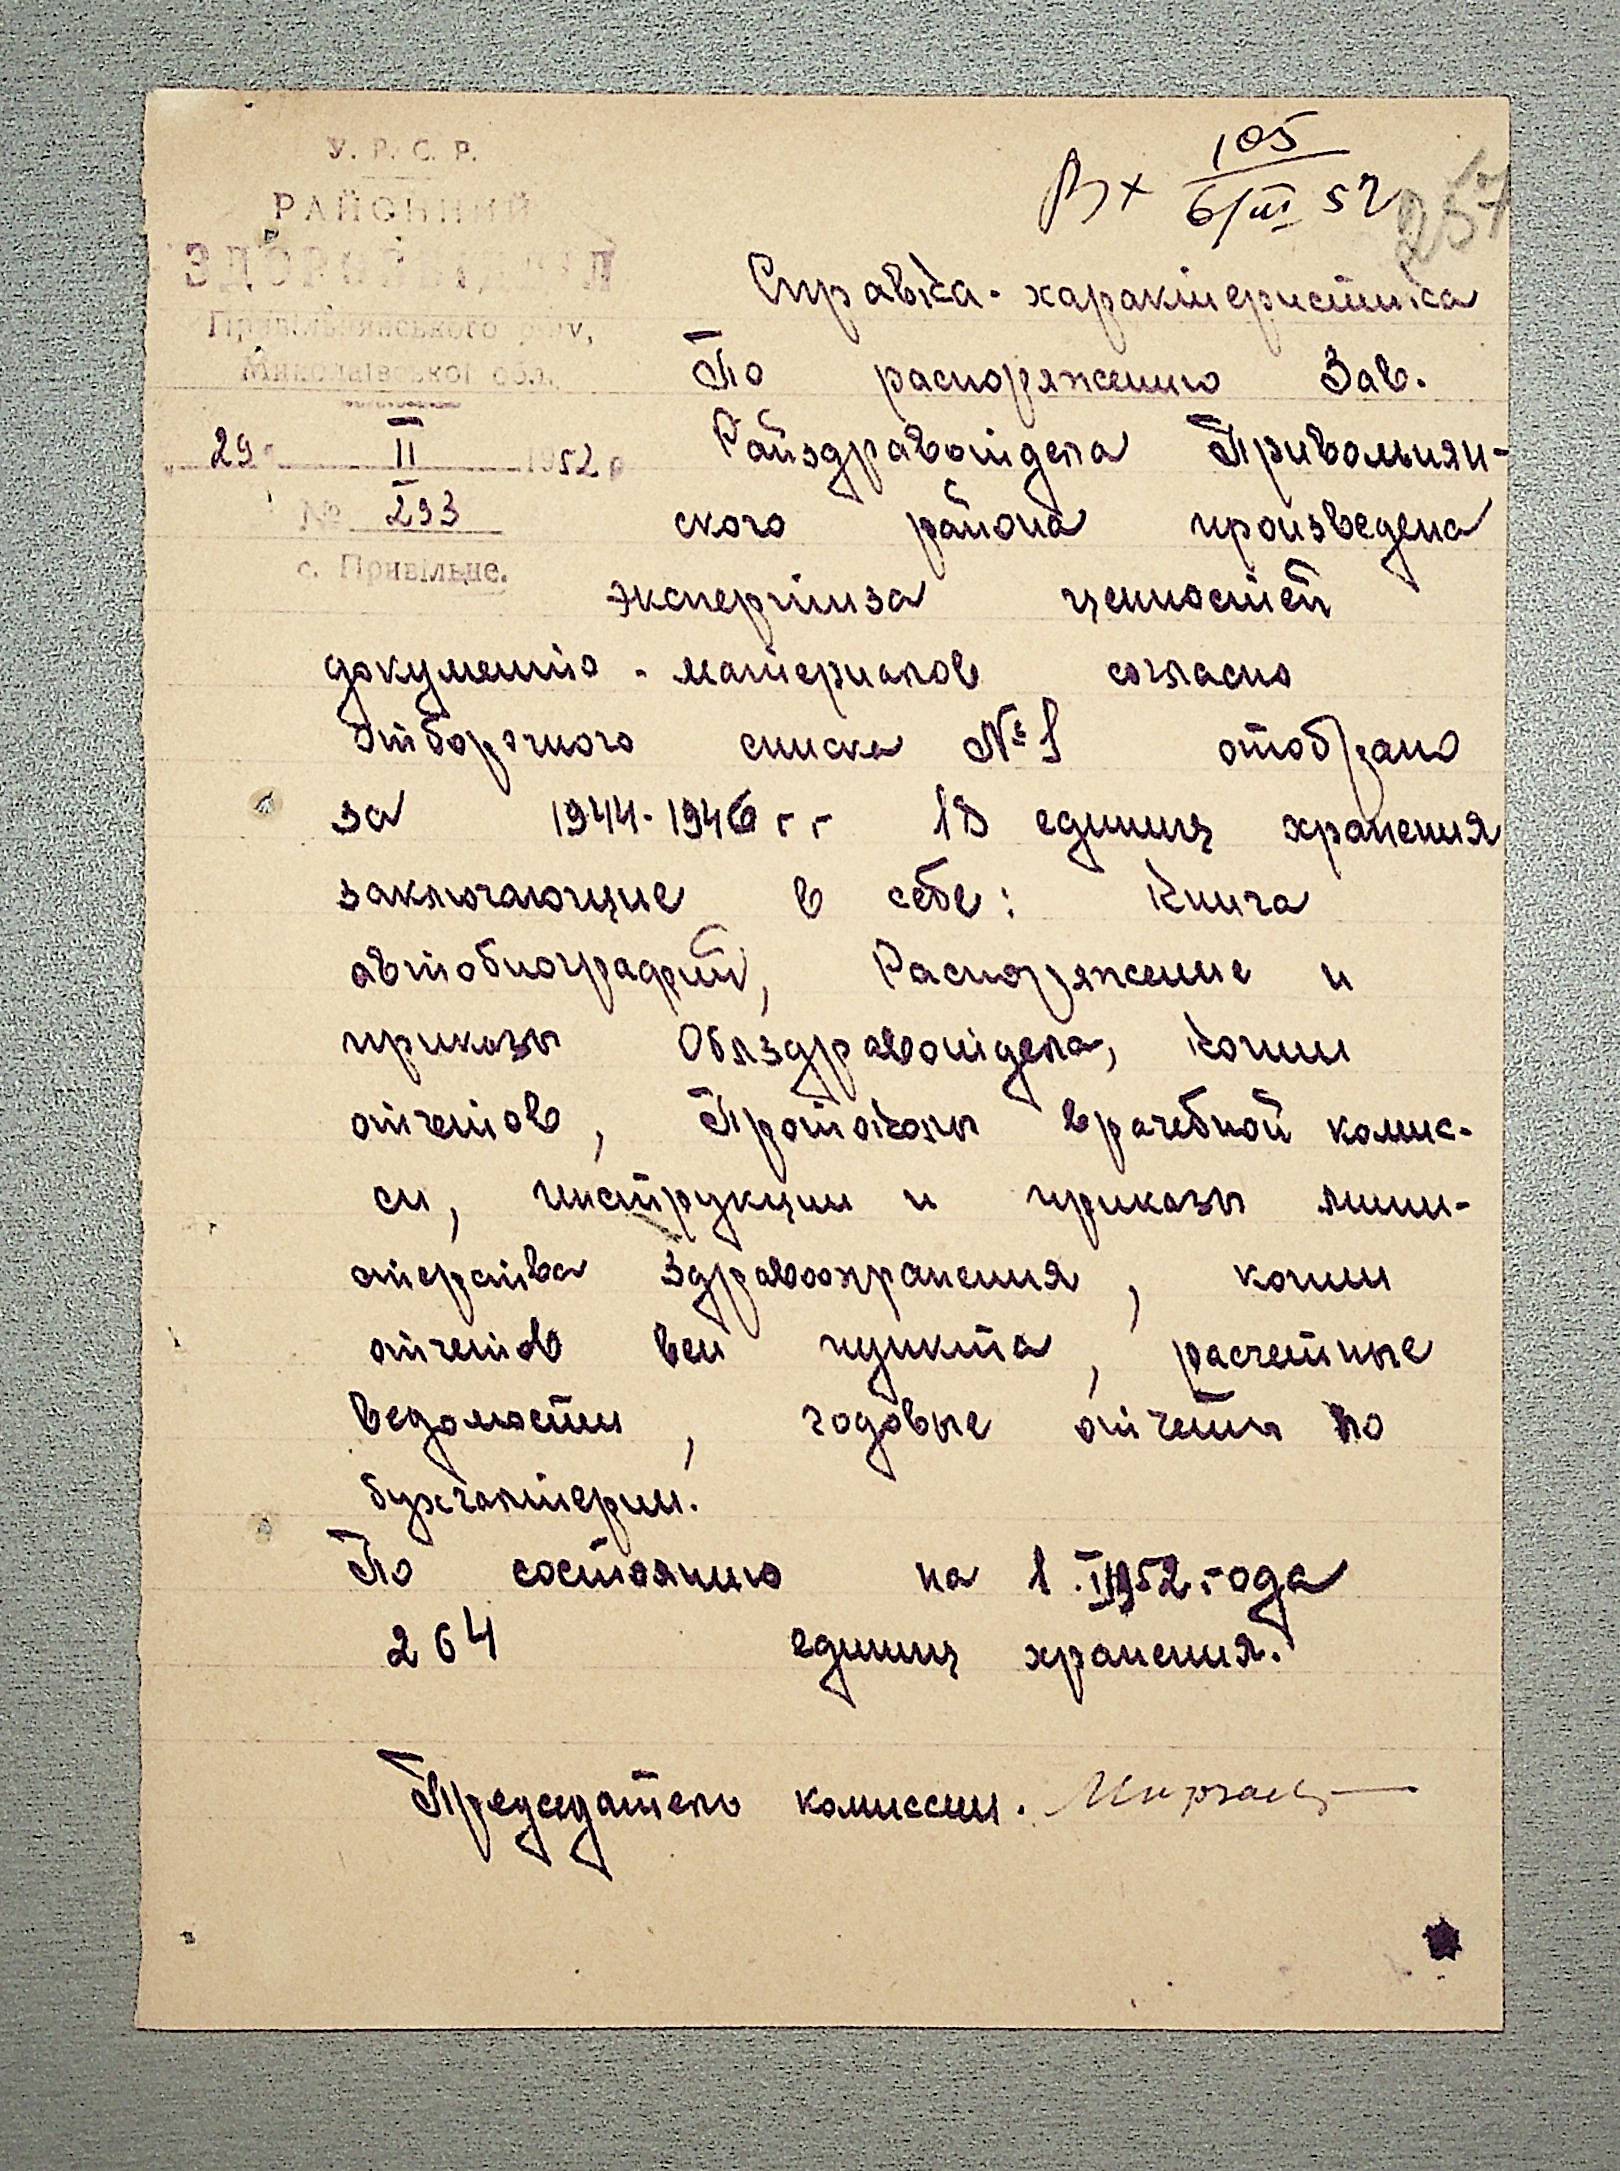 У. Р. С. Р.
РАЙОННИЙ
ЗДОРОВВІДДІЛ
Привільнянського р-ну,
Миколаївської обл.
"29" II 1952 р
№ 293
с. Привільне.
Вх 105
6/III 52
257
Справка-характеристика
По распоряжению Зав.
Райздравотдела Привольнян-
ского района произведена
экспертиза ценностей
документо-материалов согласно
Отборочного списка №1 отобрано
за 1944-1946 г г 18 единиц хранения
заключающие в себе: Книга
автобиографий, Распоряжение и
приказы Облздравотдела, Копии
отчетов, Протоколы врачебной комис-
си, инструкции и приказы мини-
стерства Здравоохранения, копии
отчетов вен пункта, расчетные
ведомости, годовые отчеты по
бухгалтерии.
По состоянию на 1. 1952 года
264 единиц хранения.
Председатель комиссии.